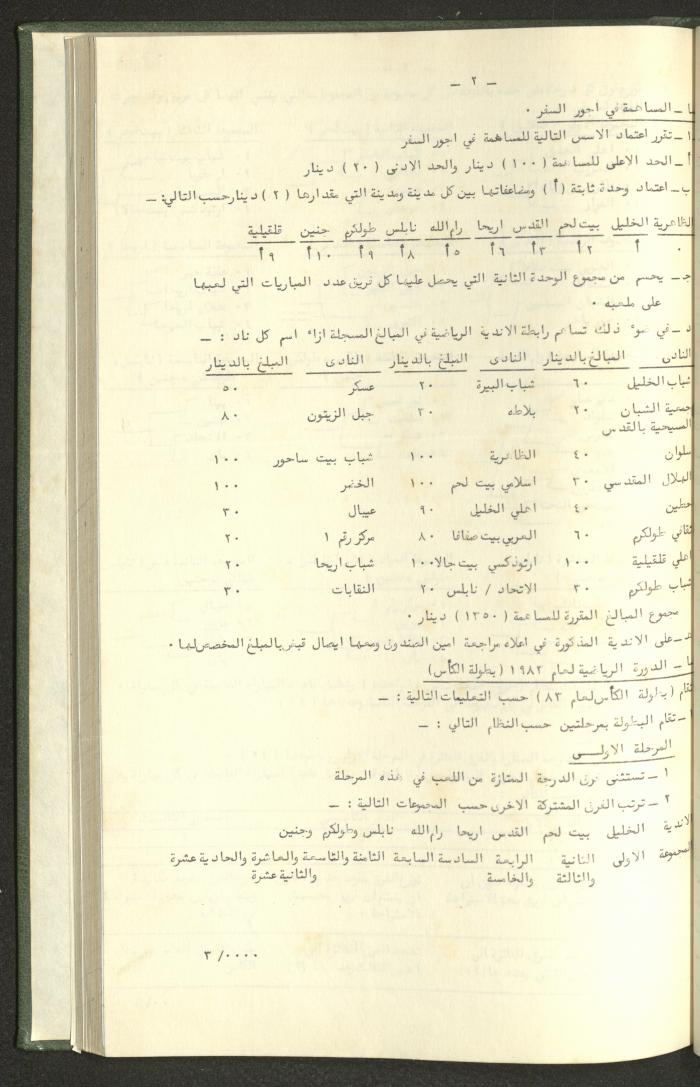 — ٢ —
ـا ـ المساهمة في اجور السفر ٠
١ـ تقرر اعتماد الاسس التالية للمساهمة في اجور السفر
أ ـ الحد الاعلى للمساهمة ( ١٠٠ ) دينار والحد الادنى ( ٢٠ ) دينار
ب ـ اعتماد وحدة ثابتة ( أ ) ومضاعفاتها بين كل مدينة ومدينة التي مقدارها ( ٢ ) دينار حسب التالي: ـ
الظاهرية الخليل بيت لحم القدس اريحا رام الله نابلس طولكرم جنين قلقيلية
٠ أ ٢ أ ٣ أ ٦ أ ٥ أ ٨ أ ٩ أ ١٠ أ ٩ أ
جـ ـ يحسم من مجموع الوحدة الثانية التي يحصل عليها كل فريق عدد المباريات التي لعبها
على ملعبه ٠
د ـ في ضوء ذلك تساهم رابطة الاندية الرياضية في المبالغ المسجلة ازاء اسم كل ناد : ـ
النادى المبالغ بالدينار النادى المبلغ بالدينار النادى المبلغ بالدينار
شباب الخليل ٦٠ شباب البيرة ٢٠ عسكر ٥٠
جمعية الشبان ٢٠ بلاطه ٣٠ جبل الزيتون ٨٠
المسيحية بالقدس
سلوان ٤٠ الظاهرية ١٠٠ شباب بيت ساحور ١٠٠
الهلال المقدسي ٣٠ اسلامي بيت لحم ١٠٠ الخضر ١٠٠
حطين ٤٠ اهلي الخليل ٩٠ عيبال ٣٠
ثقافي طولكرم ٦٠ العربي بيت صفافا ٨٠ مركز رقم ١ ٢٠
اهلي قلقيلية ١٠٠ ارثوذكسي بيت جالا ١٠٠ شباب اريحا ٢٠
شباب طولكرم ٣٠ الاتحاد / نابلس ٢٠ النقابات ٣٠
مجموع المبالغ المقررة للمساهمة ( ١٣٥٠ ) دينار ٠
هـ ـ على الاندية المذكورة في اعلاه مراجعة امين الصندوق ومعها ايصال قبض بالمبلغ المخصص لها ٠
ـا ـ الدورة الرياضية لعام ١٩٨٢ ( بطولة الكأس )
تقام ( بطولة الكأس لعام ٨٣ ) حسب التعليمات التالية : ـ
أ ـ تقام البطولة بمرحلتين حسب النظام التالي : ـ
المرحلة الاولــى
١ ـ تستثنى فرق الدرجة الممتازة من اللعب في هذه المرحلة
٢ ـ ترتب الفرق المشتركة الاخرى حسب المجموعات التالية : ـ
الاندية الخليل بيت لحم القدس اريحا رام الله نابلس وطولكرم وجنين
المجموعة الاولى الثانية الرابعة السادسة السابعة الثامنة والتاسعة والعاشرة والحادية عشرة
والثالثة والخامسة والثانية عشرة
٣ /٠٠٠٠